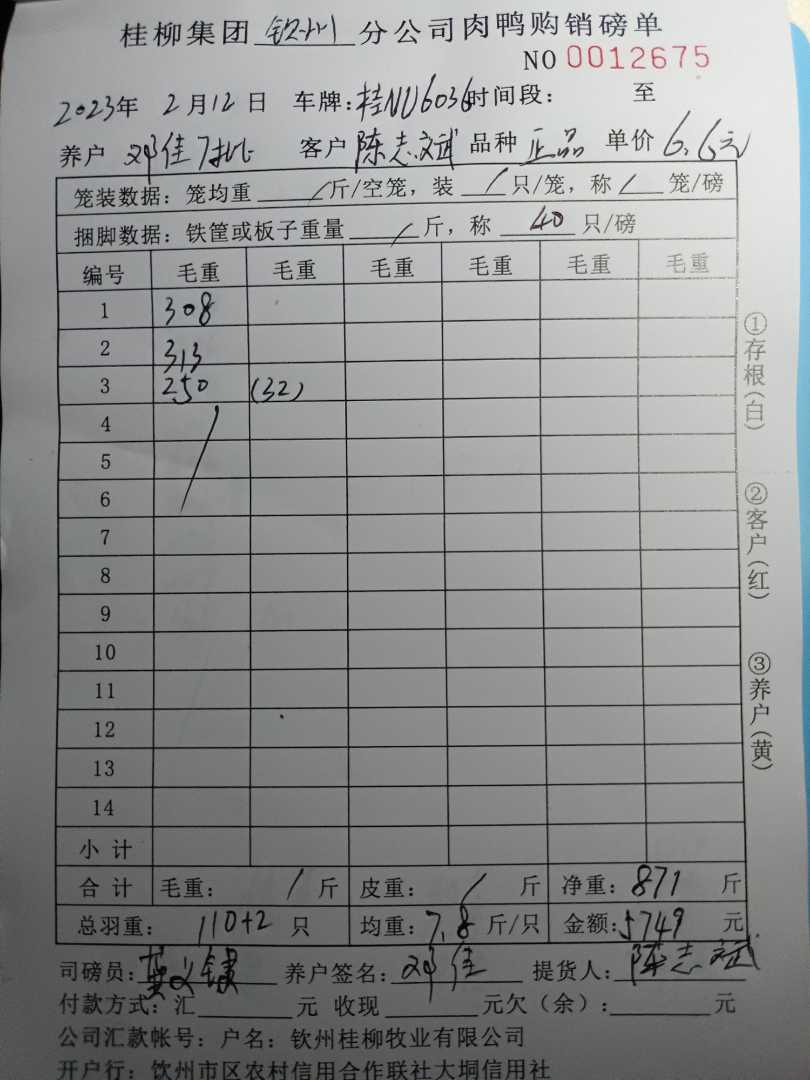 桂柳集团 钦州 分公司肉鸭购销磅单
NO 0012675
2023年 2月12日 车牌:桂NU6036 时间段: 至
养户 邓佳7批 客户 陈志斌 品种 正品 单价 6.6元
笼装数据: 笼均重 / 斤/空笼, 装 / 只/笼, 称 / 笼/磅
捆脚数据: 铁筐或板子重量 / 斤, 称 40 只/磅
编号 毛重 毛重 毛重 毛重 毛重 毛重
1 308
2 313
3 250 (32)
4
5
6
7
8
9
10
11
12
13
14
小计
合计 毛重: / 斤 皮重: / 斤 净重: 871 斤
总羽重: 110+2 只 均重: 7.8 斤/只 金额: 5749 元
司磅员: 养户签名: 邓佳 提货人: 陈志斌
付款方式: 汇 元 收现 元欠(余): 元
公司汇款帐号: 户名: 钦州桂柳牧业有限公司
开户行: 钦州市区农村信用合作联社大垌信用社
①存根(白)
②客户(红)
③养户(黄)